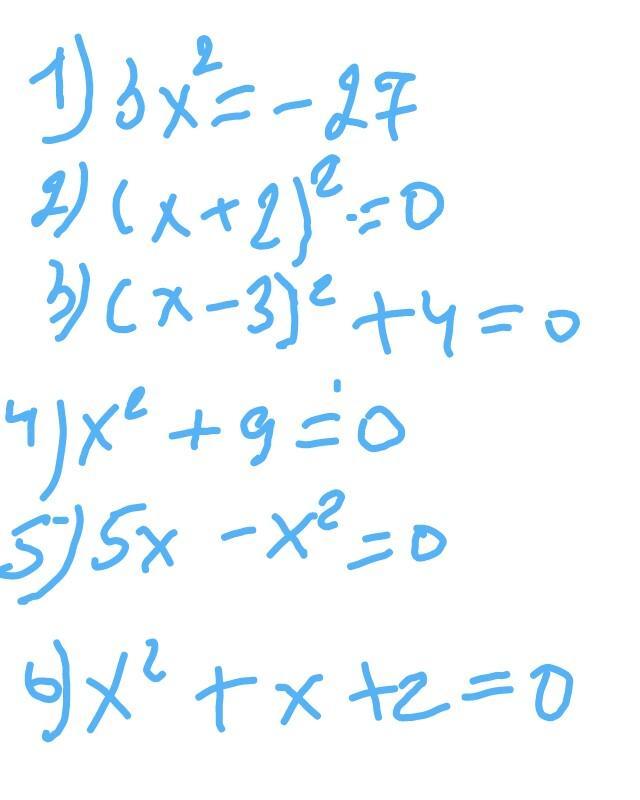 1) 3x² = -27
2) (x+2)² = 0
3) (x-3)² + 4 = 0
4) x² + 9 = 0
5) 5x - x² = 0
6) x² + x + 2 = 0